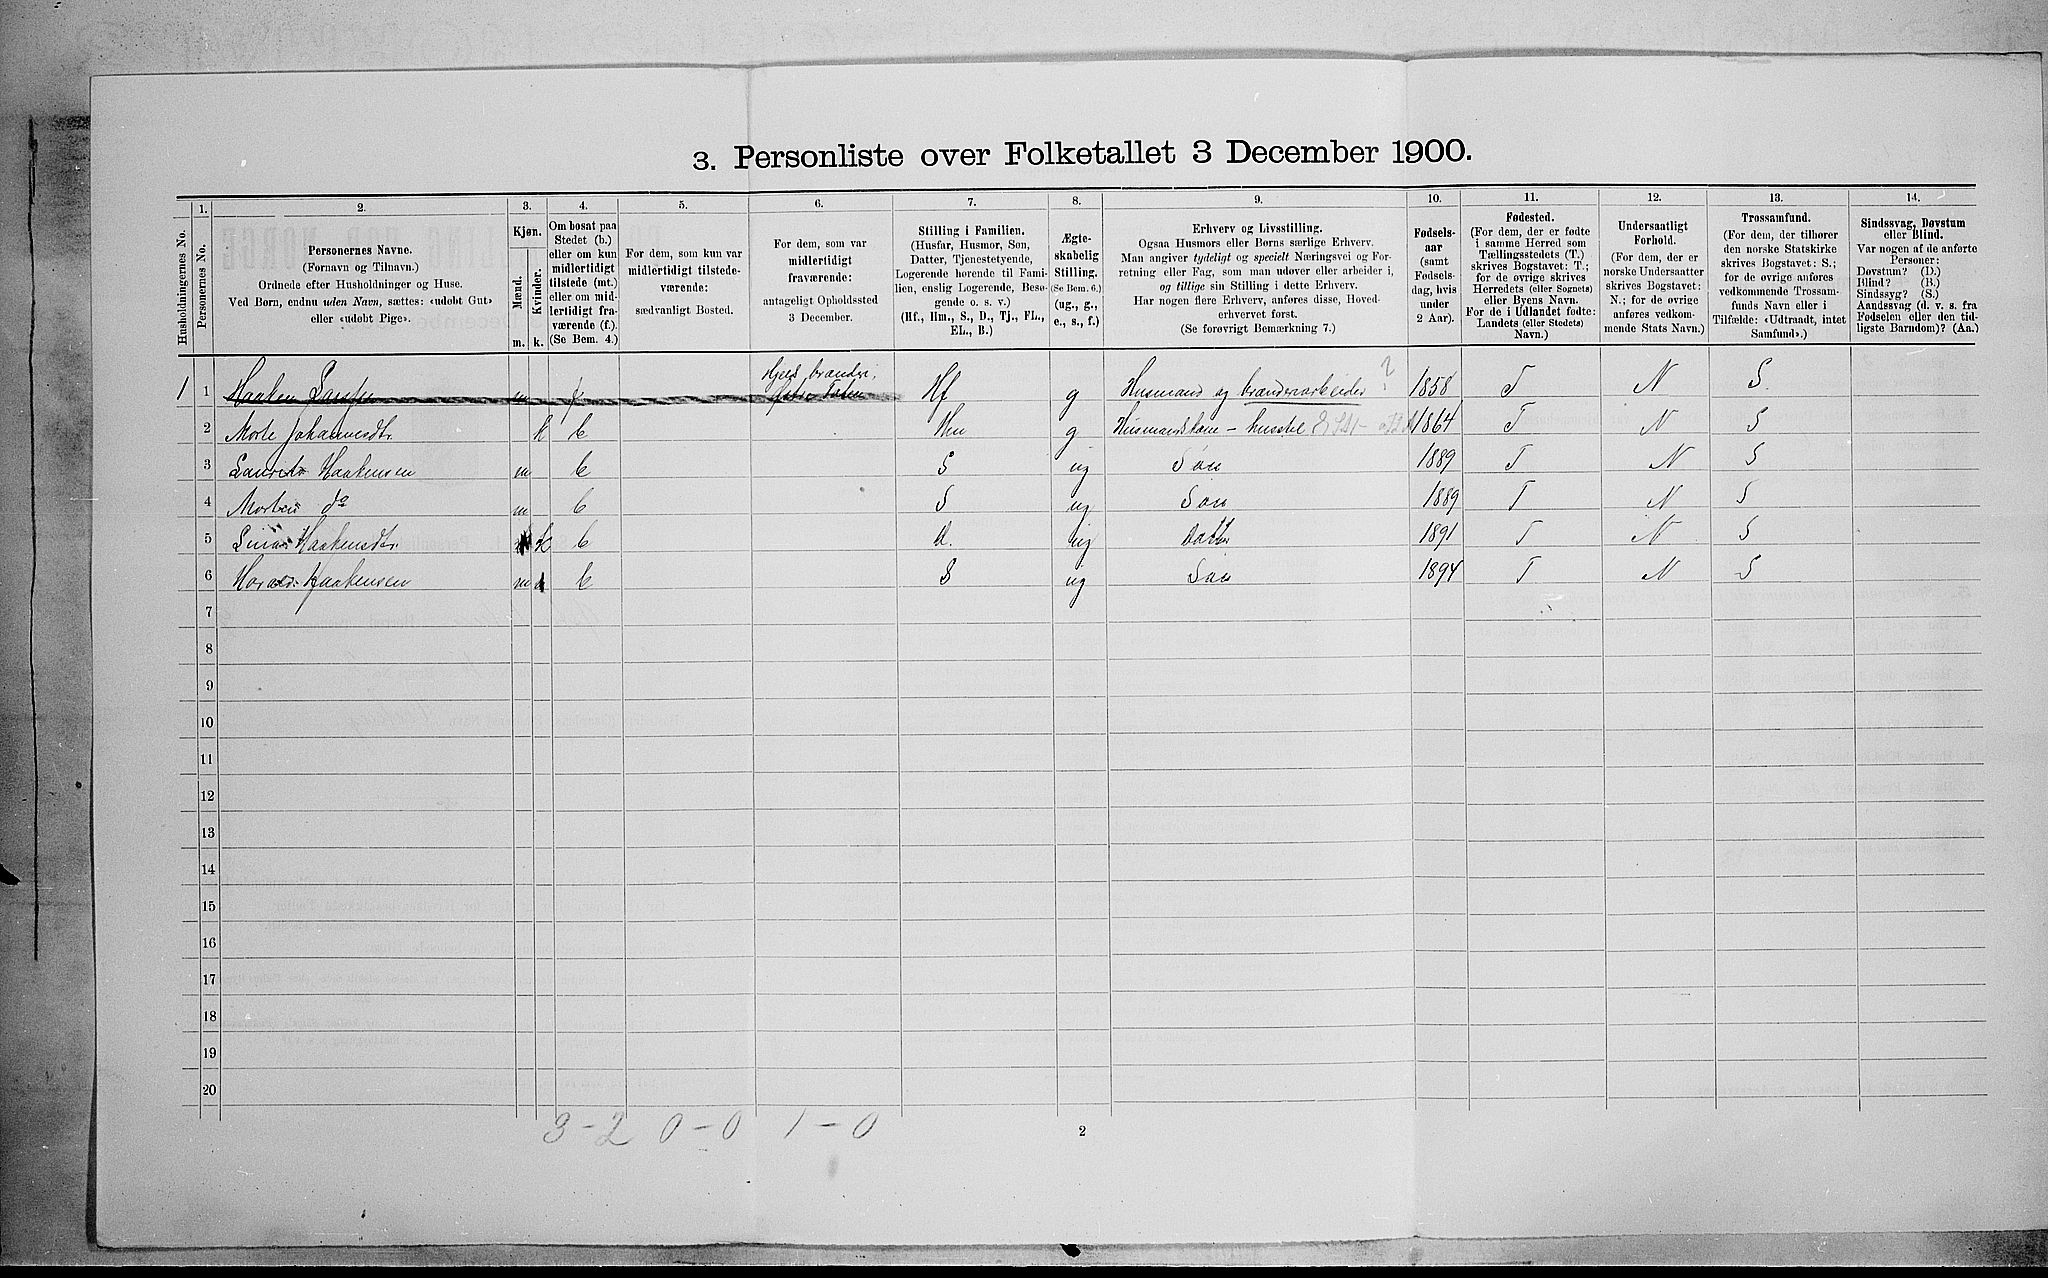 3. Personliste over Folketallet 3 December 1900.
Husholdningernes No.
1.
Personernes No.
2.
Personernes Navne.
(Fornavn og Tilnavn.)
Ordnede efter Husholdninger og Huse.
Ved Børn, endnu uden Navn, sættes: «udøbt Gut»
eller «udøbt Pige».
3.
Kjøn.
Mænd.
Kvinder.
m. k.
4.
Om bosat paa
Stedet (b.)
eller om kun
midlertidigt
tilstede (mt.)
eller om mid-
lertidigt fra-
værende (f.).
(Se Bem. 4.)
5.
For dem, som kun var
midlertidigt tilstede-
værende:
sædvanligt Bosted.
6.
For dem, som var
midlertidigt
fraværende:
antageligt Opholdssted
3 December.
7.
Stilling i Familien.
(Husfar, Husmor, Søn,
Datter, Tjenestetyende,
Logerende hørende til Fami-
lien, enslig Logerende, Besø-
gende o. s. v.)
(Hf., Hm., S., D., Tj., FL.,
EL., B.)
8.
Ægte-
skabelig
Stilling.
(Se Bem. 6.)
(ug., g.,
e., s., f.)
9.
Erhverv og Livsstilling.
Ogsaa Husmors eller Børns særlige Erhverv.
Man angiver tydeligt og specielt Næringsvei og For-
retning eller Fag, som man udøver eller arbeider i,
og tillige sin Stilling i dette Erhverv.
Har nogen flere Erhverv, anføres disse, Hoved-
erhvervet først.
(Se forøvrigt Bemærkning 7.)
10.
Fødsels-
aar
(samt
Fødsels-
dag, hvis
under
2 Aar).
11.
Fødested.
(For dem, der er fødte
i samme Herred som
Tællingsstedets (T.)
skrives Bogstavet: T.;
for de øvrige skrives
Herredets (eller Sognets)
eller Byens Navn.
For de i Udlandet fødte:
Landets (eller Stedets)
Navn.)
12.
Undersaatligt
Forhold.
(For dem, der er
norske Undersaatter
skrives Bogstavet:
N.; for de øvrige
anføres vedkom-
mende Stats Navn.)
13.
Trossamfund.
(For dem, der tilhører
den norske Statskirke
skrives Bogstavet: S.;
for de øvrige anføres
vedkommende Trossam-
funds Navn eller i
Tilfælde: «Udtraadt, intet
Samfund».)
14.
Sindssvag, Døvstum
eller Blind.
Var nogen af de anførte
Personer:
Døvstum? (D.)
Blind? (B.)
Sindssyg? (S.)
Aandssvag (d. v. s. fra
Fødselen eller den tid-
ligste Barndom)? (Aa.)
1 1 Haaken m f Hf g Husmand og brænderiarbeider ? 1858 T N S.
2 Marte Johannesdtr. k b Hm g Husmandskone - husstel 1864 T N S
3 Laurits Haakensen m b S ug Søn 1889 T N S
4 Morten do m b S ug Søn 1889 T N S
5 Haakensdtr. k b d. ug Datter 1891 T N S
6 Harald Haakensen m b S ug Søn 1894 T N S
7
8
9
10
11
12
13
14
15
16
17
18
19
20
3 - 2 0 - 0 1 - 0
2